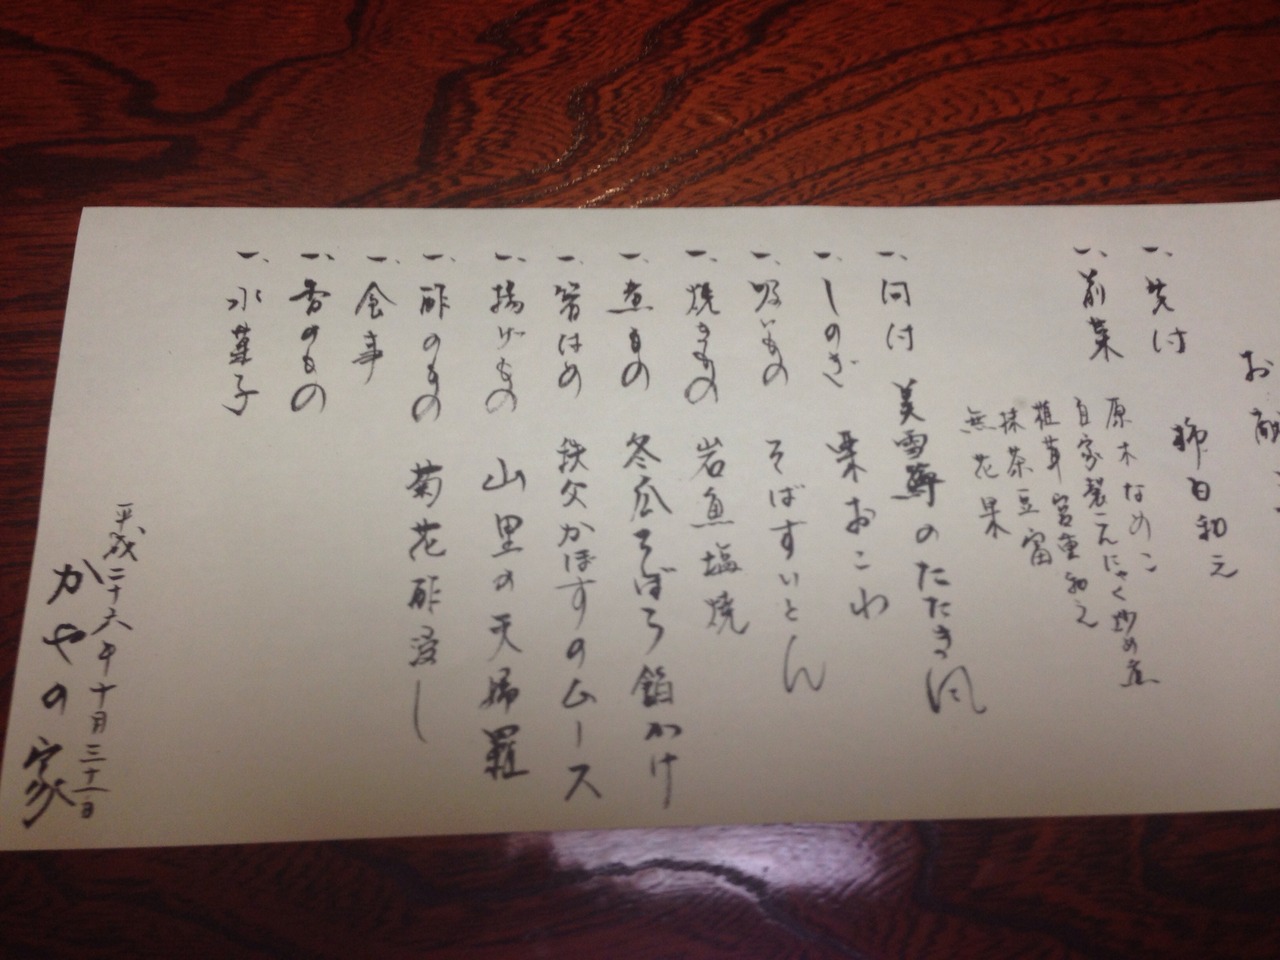 お献立
一、先付 柿白和え
一、前菜 原木なめこ
自家製こんにゃく炒め煮
椎茸 宮重和え
抹茶豆富
無花果
一、向付 美雪鱒のたたき風
一、しのぎ 栗おこわ
一、吸いもの そばすいとん
一、焼きもの 岩魚塩焼
一、煮もの 冬瓜そぼろ餡かけ
一、箸休め 秩父かぼすのムース
一、揚げもの 山里の天婦羅
一、酢のもの 菊花酢浸し
一、食事
一、香のもの
一、水菓子
平成二十六年十月三十一日
かやの家